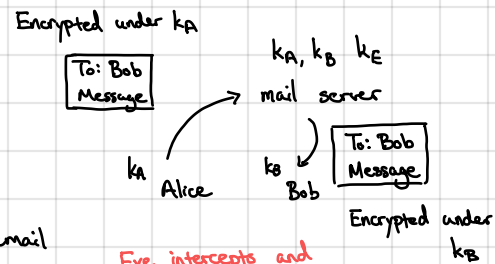 Encrypted under kA
To: Bob
Message
kA, kB kE
mail server
To: Bob
Message
kA
Alice
kB
Bob
Encrypted under
kB
mail
Eve intercepts and